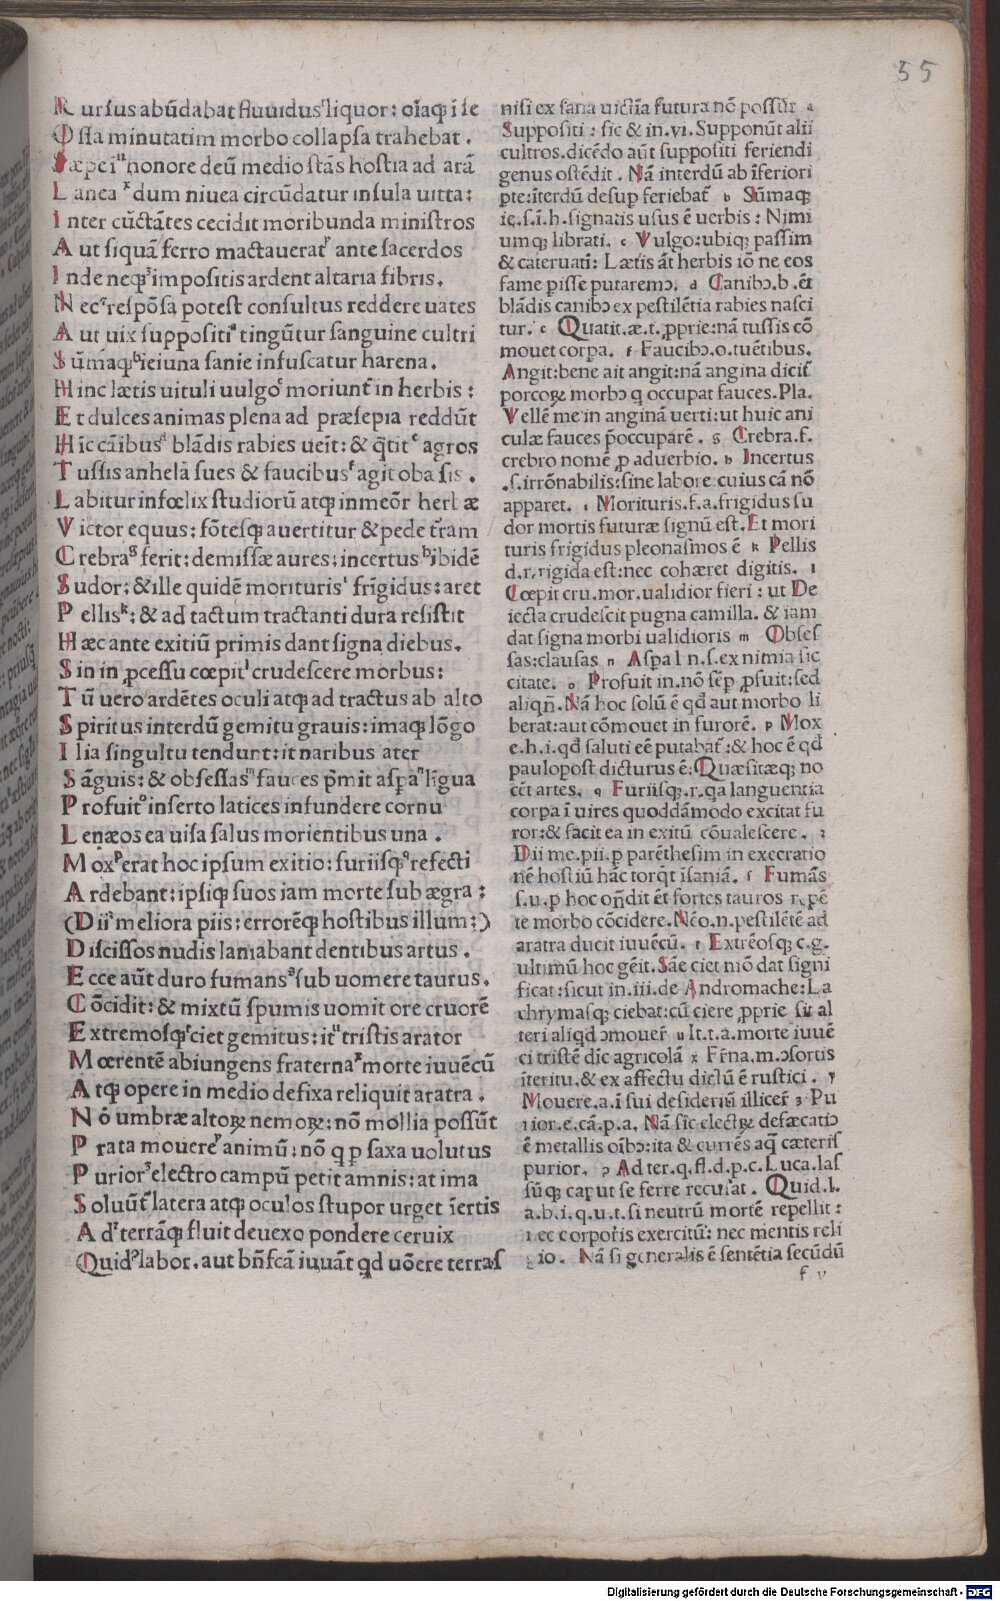 55
Rursus abūdabat fluuidus liquor: oīaq; ī se
Ossa minutatim morbo collapsa trahebat.
Sæpe ī honore deū medio stās hostia ad arā
Lanea dum niuea circūdatur insula uitta:
Inter cūctātes cecidit moribunda ministros
Aut siquā ferro mactauerat ante sacerdos
Inde neq; impositis ardent altaria fibris.
Nec respōsa potest consultus reddere uates
Aut uix suppositi tingūtur sanguine cultri
Sūmaq; ieiuna sanie infuscatur harena.
Hinc lætis uituli uulgo moriunt̄ in herbis:
Et dulces animas plena ad præsepia reddūt
Hic cāibus blādis rabies ueīt: & q̄tit agros
Tussis anhela sues & faucibus agit obasis.
Labitur infœlix studiorū atq; inmeōr herbæ
Victor equus: fōtesq; auertitur & pede tr̄am
Crebra ferit: demissæ aures: incertus ibidē
Sudor: & ille quidē morituris frigidus: aret
Pellis: & ad tactum tractanti dura resistit
Hæc ante exitiū primis dant signa diebus.
Sin in ꝓcessu cœpit crudescere morbus:
Tū uero ardētes oculi atq; ad tractus ab alto
Spiritus interdū gemitu grauis: imaq; lōgo
Ilia singultu tendunt: it naribus ater
Sāguis: & obsessas fauces p̄mit asp̄a līgua
Profuit inserto latices infundere cornu
Lenæos ea uisa salus morientibus una.
Mox erat hoc ipsum exitio: furiisq; refecti
Ardebant: ipsiq; suos iam morte sub ægra:
(Dii meliora piis: errorēq; hostibus illum:)
Discissos nudis laniabant dentibus artus.
Ecce aūt duro fumans sub uomere taurus.
Cōcidit: & mixtū spumis uomit ore cruorē
Extremosq; ciet gemitus: it tristis arator
Mœrentē abiungens fraterna morte iuuēcū
Atq; opere in medio defixa reliquit aratra.
Nō umbræ altoꝝ nemoꝝ: nō mollia possūt
Prata mouere animū: nō q p saxa uolutus
Purior electro campū petit amnis: at ima
Soluūt latera atq; oculos stupor urget īertis
Ad terrāq; fluit deuexo pondere ceruix
Quid labor. aut bn̄fcā iuuāt qd uōere terras
nisi ex sana uictīa futura nō possūt a
Suppositi: sic & in .vi. Supponūt alii
cultros. dicēdo aūt suppositi feriendi
genus ostēdit. Nā interdū ab īferiori
pte: īterdū desup feriebat̄ b Sūmaq;
ie.s.i.h. signatis usus ē uerbis: Nimi
umq; librati. c Vulgo: ubiq; passim
& cateruatī: Lætis āt herbis iō ne eos
fame piisse putaremꝰ. d Canibꝰ.b. ēt
blādis canibꝰ ex pestilētia rabies nasci
tur. e Quatit.æ.t. ꝓprie: nā tussis cō
mouet corpa. f Faucibꝰ.o. tuētibus.
Angit: bene ait angit: nā angina dicit̄
porcoꝝ morbꝰ q occupat fauces. Pla.
Vellē me in anginā uerti: ut huic ani
culæ fauces p̄occuparē. g Crebra.f.
crebro nomē ꝓ aduerbio. h Incertus
.s. irrōnabilis: sine labore: cuius cā nō
apparet. i Morituris.f.a. frigidus su
dor mortis futuræ signū est. Et mori
turis frigidus pleonasmos ē k Pellis
d.r. rigida est: nec cohæret digitis. l
Cœpit cru.mor. ualidior fieri: ut De
iecta crudescit pugna camilla. & iam
dat signa morbi ualidioris m Obses
sas: clausas n Aspa l n.s. ex nimia sic
citate. o Profuit in. nō sēp ꝓsuit: sed
aliqn̄. Nā hoc solū ē qd aut morbo li
berat: aut cōmouet in furorē. p Mox
e.h.i. qd saluti eē putabat̄: & hoc ē qd
paulopost dicturus ē: Quæsitæq; no
cēt artes. q Furiisq;.r. qa languentia
corpa ī uires quoddāmodo excitat fu
ror: & facit ea in exitū cōualescere. r
Dii me.pii. p parēthesim in execratio
nē hostiū hāc torq̄t īsaniā. s Fumās
s.u. p hoc on̄dit ēt fortes tauros repē
te morbo cōcidere. Nēo.n. pestilētē ad
aratra ducit iuuēcū. t Extrēosq; c.g.
ultimū hoc gēit. Sāe ciet mō dat signi
ficat: sicut in .iii. de Andromache: La
chrymasq; ciebat: cū ciere ꝓprie sit al
teri aliqd ꝯmouer̄ u It.t.a. morte iuuē
ci tristē dic agricolā x Fr̄na.m. ꝯsortis
īteritu. & ex affectu dictū ē rustici. y
Mouere.a. ī sui desideriū illicer̄ z Pu
rior.e.cā.p.a. Nā sic electꝝ defæcatiꝰ
ē metallis oībꝰ: ita & currēs aq̄ cæteris
purior. ꝯ Ad ter.q.fl.d.p.c. Luca. las
sūq; caput se ferre recusat. Quid.l.
a.b.i.q.u.t. si neutrū mortē repellit:
nec corporis exercitū: nec mentis reli
gio. Nā si generalis ē sentētia secūdū
f v
Digitalisierung gefördert durch die Deutsche Forschungsgemeinschaft - DFG